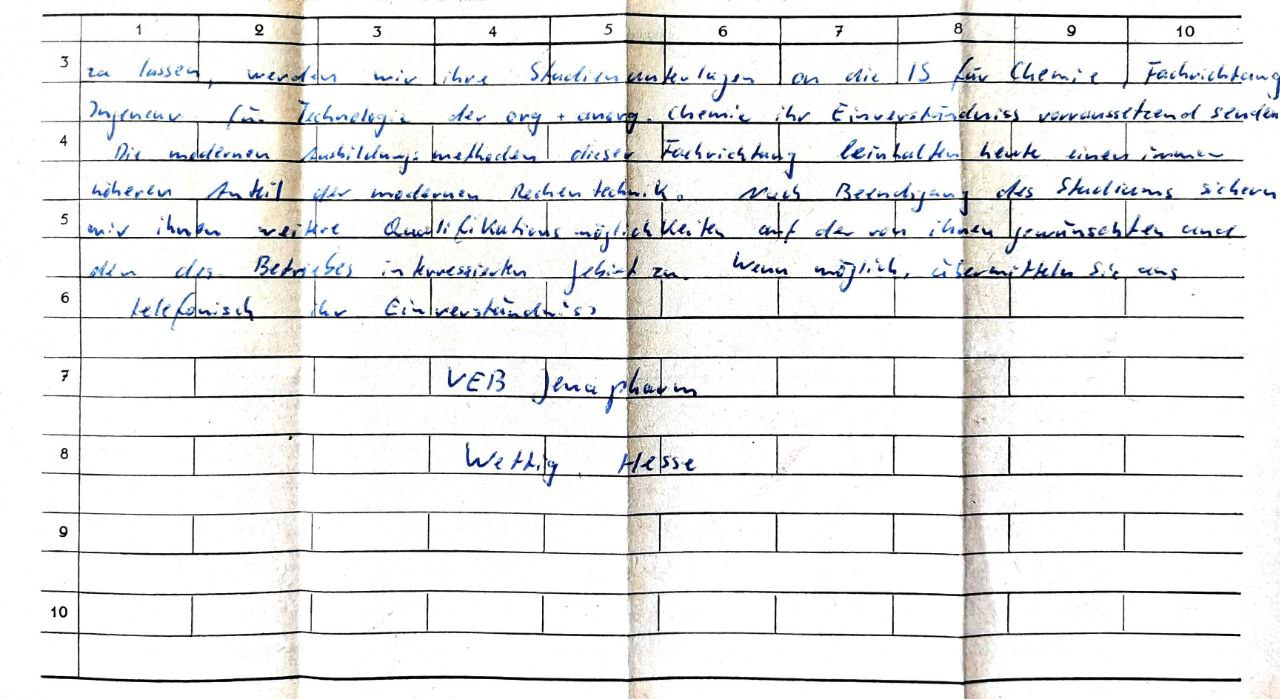 1 2 3 4 5 6 7 8 9 10
3 zu lassen, werden wir ihre Studienunterlagen an die IS für Chemie, Fachrichtung
Ingenieur für Technologie der org + anorg. Chemie ihr Einverständniss vorraussetzend senden
4 Die modernen Ausbildungsmethoden dieser Fachrichtung beinhalten heute einen immer
höheren Anteil der modernen Rechentechnik. Nach Beendigung des Studiums sichern
5 wir ihnen weitere Qualifikationsmöglichkeiten auf der von ihnen gewünschten und
den des Betriebes interressierten Gebiet zu. Wenn möglich, übermitteln Sie uns
6 telefonisch ihr Einverständniss
7 VEB Jenapharm
8 Wettig Hesse
9
10